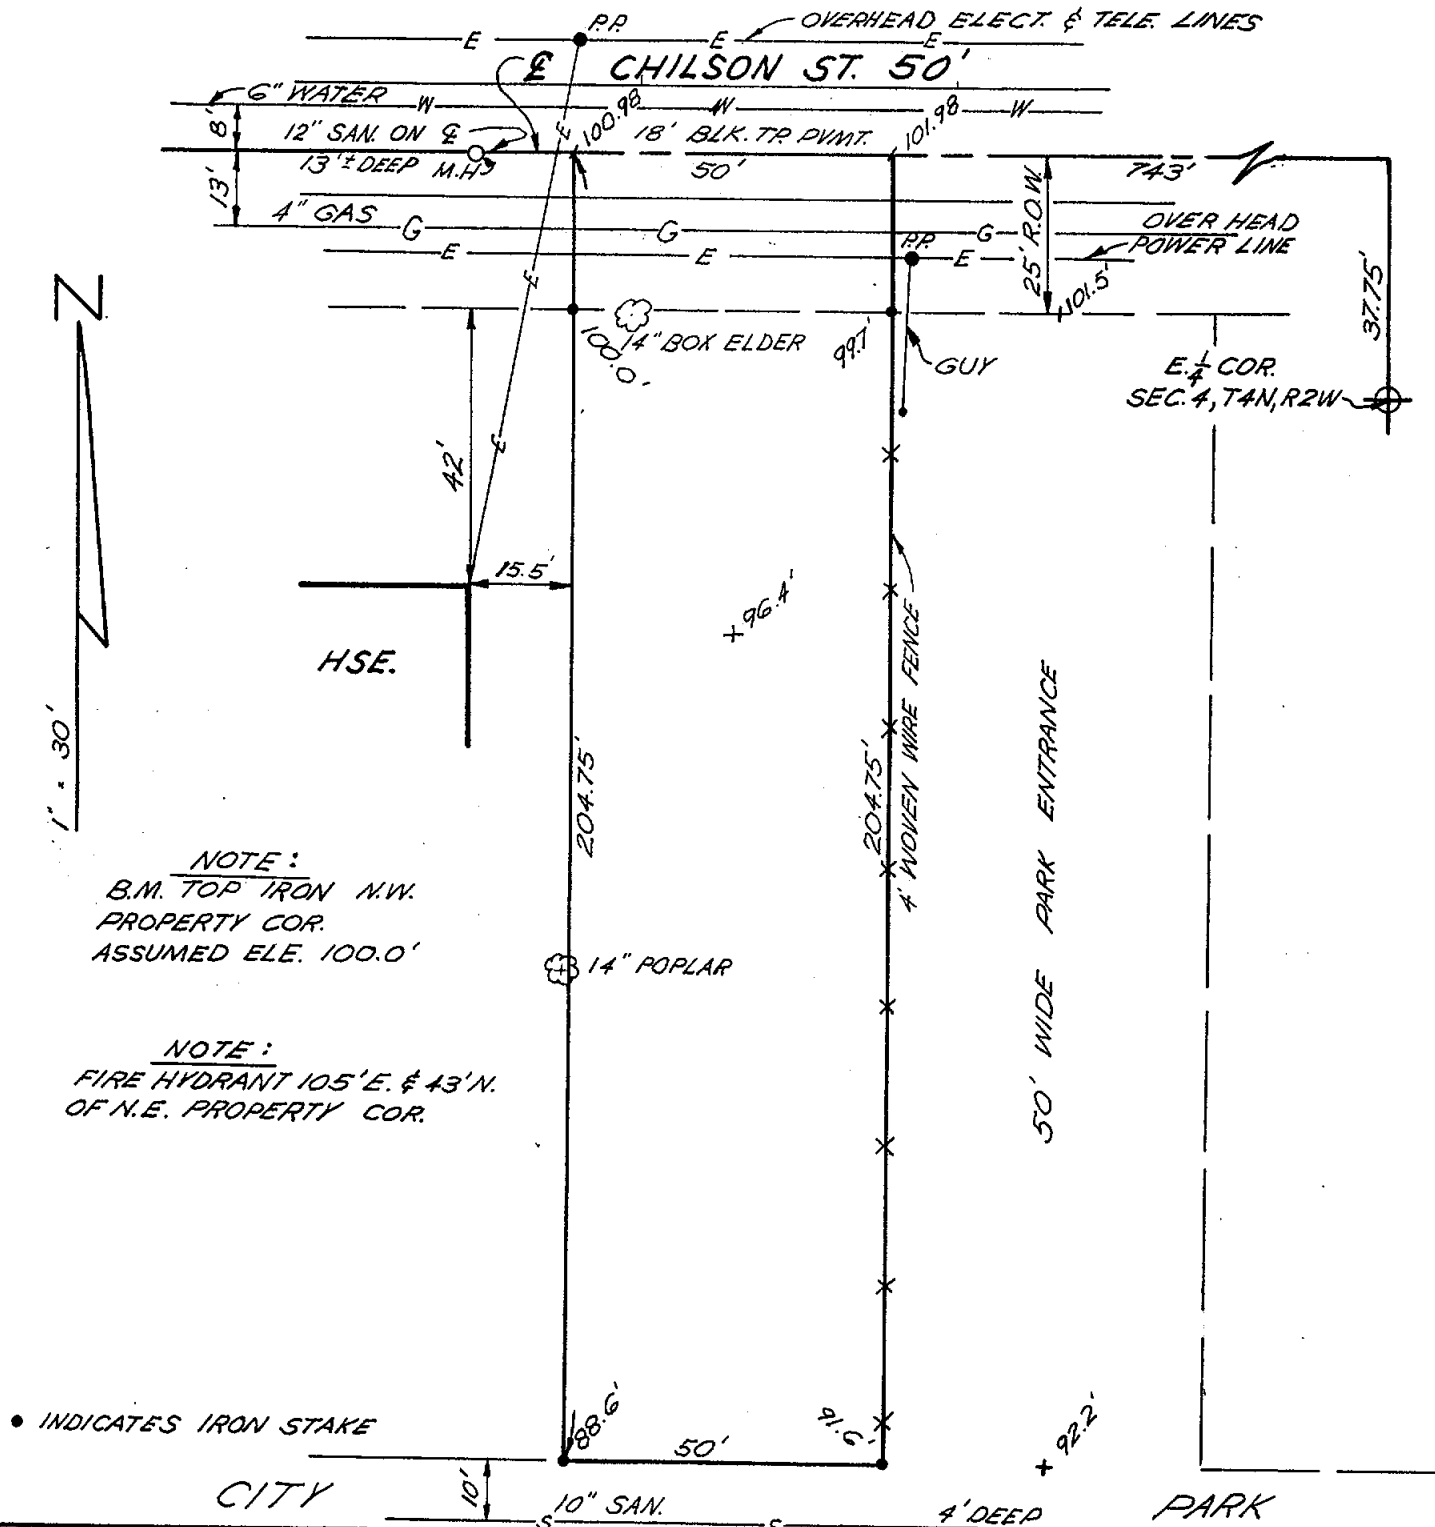 P.P.
OVERHEAD ELECT. & TELE. LINES
E E E
℄ CHILSON ST. 50'
6" WATER W W W
8'
12" SAN. ON ℄
100.98
18' BLK. TP. PVMT.
101.98
13'± DEEP M.H.
50'
743'
13'
4" GAS G G G
25' R.O.W.
OVER HEAD
POWER LINE
P.P.
E E E
E
E
E
101.5'
37.75'
100.0'
14" BOX ELDER
99.7'
GUY
E. 1/4 COR.
SEC. 4, T4N, R2W
N
42'
15.5'
96.4'
HSE.
1" = 30'
204.75'
204.75'
4' WOVEN WIRE FENCE
50' WIDE PARK ENTRANCE
NOTE:
B.M. TOP IRON N.W.
PROPERTY COR.
ASSUMED ELE. 100.0'
14" POPLAR
NOTE:
FIRE HYDRANT 105' E. & 43' N.
OF N.E. PROPERTY COR.
• INDICATES IRON STAKE
88.6'
50'
91.6'
92.2'
CITY
10'
10" SAN.
4' DEEP
PARK
S S